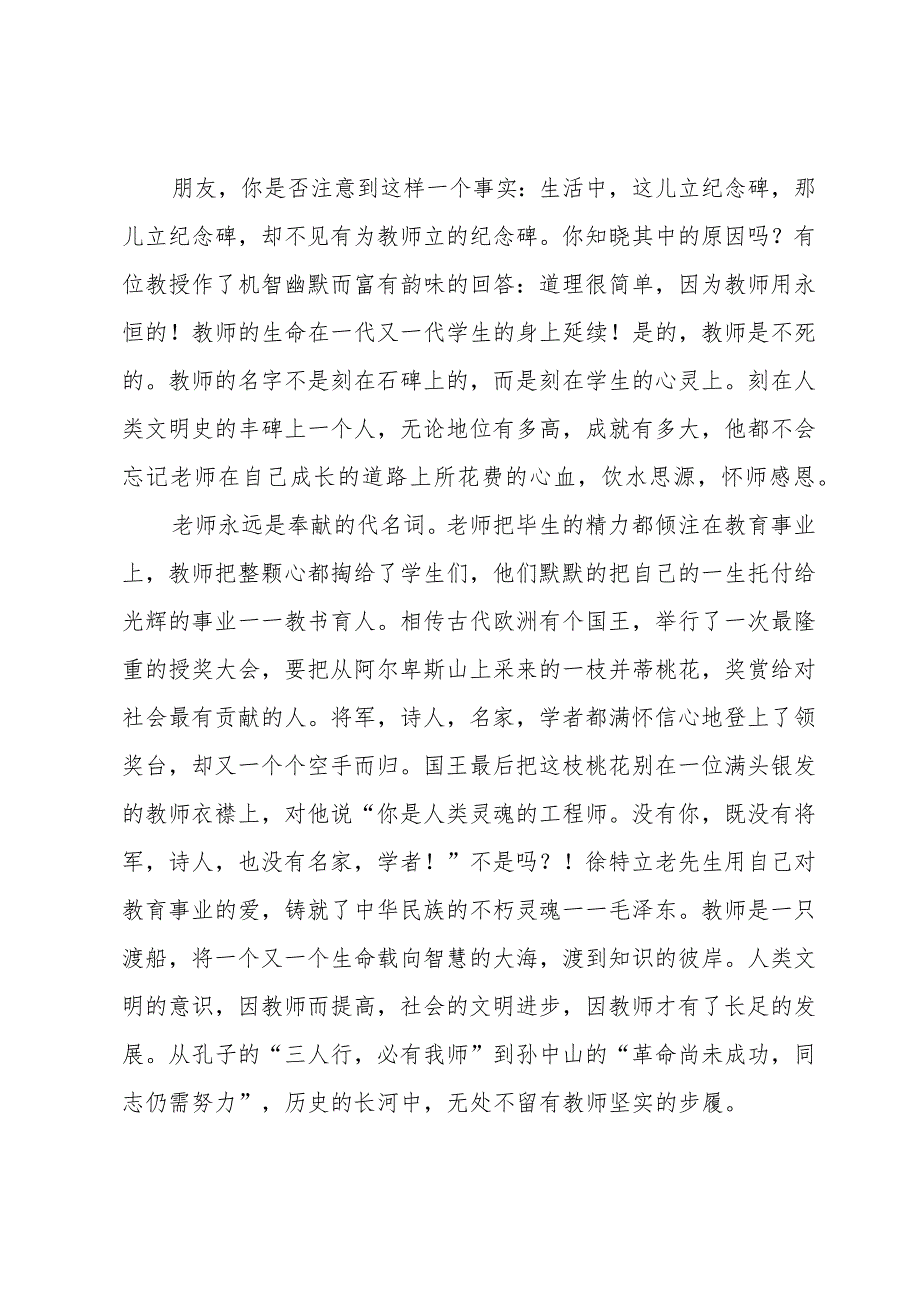 朋友，你是否注意到这样一个事实：生活中，这儿立纪念碑，那
儿立纪念碑，却不见有为教师立的纪念碑。你知晓其中的原因吗？有
位教授作了机智幽默而富有韵味的回答：道理很简单，因为教师用永
恒的！教师的生命在一代又一代学生的身上延续！是的，教师是不死
的。教师的名字不是刻在石碑上的，而是刻在学生的心灵上。刻在人
类文明史的丰碑上一个人，无论地位有多高，成就有多大，他都不会
忘记老师在自己成长的道路上所花费的心血，饮水思源，怀师感恩。
老师永远是奉献的代名词。老师把毕生的精力都倾注在教育事业
上，教师把整颗心都掏给了学生们，他们默默的把自己的一生托付给
光辉的事业一一教书育人。相传古代欧洲有个国王，举行了一次最隆
重的授奖大会，要把从阿尔卑斯山上采来的一枝并蒂桃花，奖赏给对
社会最有贡献的人。将军，诗人，名家，学者都满怀信心地登上了领
奖台，却又一个个空手而归。国王最后把这枝桃花别在一位满头银发
的教师衣襟上，对他说“你是人类灵魂的工程师。没有你，既没有将
军，诗人，也没有名家，学者！”不是吗？！徐特立老先生用自己对
教育事业的爱，铸就了中华民族的不朽灵魂一一毛泽东。教师是一只
渡船，将一个又一个生命载向智慧的大海，渡到知识的彼岸。人类文
明的意识，因教师而提高，社会的文明进步，因教师才有了长足的发
展。从孔子的“三人行，必有我师”到孙中山的“革命尚未成功，同
志仍需努力”，历史的长河中，无处不留有教师坚实的步履。